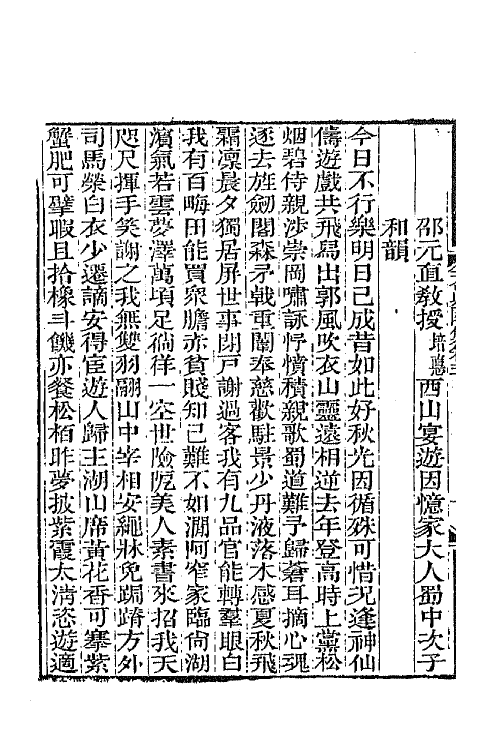 邵元直教授培惪西山宴遊因憶家大人蜀中次子
和韻
今日不行樂明日已成昔如此好秋光因循殊可惜况逢神仙
儔遊戲共飛舄出郭風吹衣山靈遠相逆去年登高時上黨松
烟碧侍親涉崇岡嘯詠忬憤積親歌蜀道難予歸蒼耳摘心魂
逐去旌劒閣森矛戟重闈奉慈歡駐景少丹液落木感夏秋飛
霜凛晨夕獨居屏世事閉戸謝過客我有九品官能轉羣眼白
我有百畮田能買衆膽赤貧賤知已難不如澗阿窄家臨尙湖
濵氣若雲夢澤萬頃足徜徉一空世險阨美人素書來招我天
咫尺揮手笑謝之我無雙羽翮山中宰相安繩牀免跼蹐方外
司馬榮白衣少遷謫安得宦遊人歸主湖山席黃花香可搴紫
蟹肥可擘暇且拾橡斗饑亦餐松栢昨夢披紫霞太清恣遊適